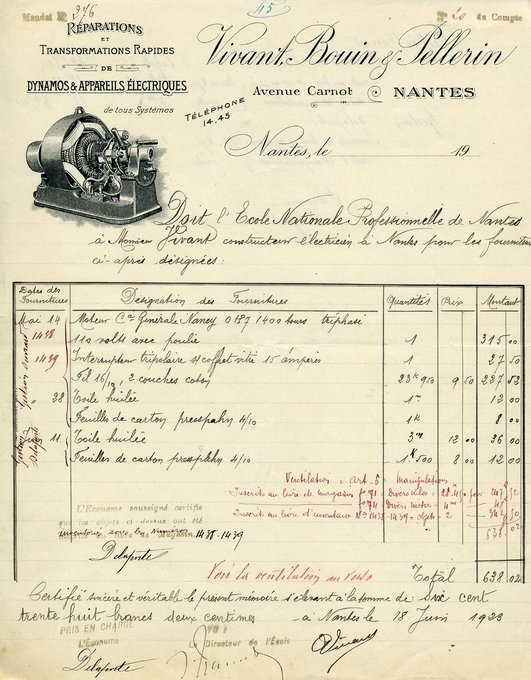 Mandat N° 276
45
N° 20 du Compte
RÉPARATIONS
ET
TRANSFORMATIONS RAPIDES
DE
DYNAMOS & APPAREILS ÉLECTRIQUES
de tous Systèmes
TÉLÉPHONE
14-45
Vivant, Bouin & Pellerin
Avenue Carnot NANTES
Nantes, le 19
Doit l'Ecole Nationale Professionnelle de Nantes
à Monsieur Vivant constructeur électricien à Nantes pour les fournitures
ci-après désignées:
Dates des Fournitures Désignation des Fournitures Quantités Prix Montant
Mai 14 Moteur Cie Générale Nancy 1400 tours triphasé
110 volts avec poulie 1 315 00
Interrupteur tripolaire s/ coffret vitré 15 ampères 1 27 50
Fil 16/10, 2 couches coton 23k 950 9 50 227 52
" 28 Toile huilée 1m 12 00
Feuilles de carton presspahn 4/10 1k 8 00
Juin 11 Toile huilée 3m 12 00 36 00
Feuilles de carton presspahn 4/10 1k500 8 00 12 00
1438
1439
Ventilation = Art. 5 Manipulations
Inscrit au livre de magasin
Inscrit au livre d'inventaire Nos 1438-1439 - objets 2 342 50
638 02
L'Économe soussigné certifie
que les objets ci-dessus ont été
inventoriés sous les Numéros 1438-1439
Delaporte
Voir la ventilation au verso
Total 638 02
Certifié sincère et véritable le présent mémoire s'élevant à la somme de: Six cent
trente huit francs deux centimes - à Nantes le 18 Juin 1923
PRIS EN CHARGE
L'Économe
Delaporte
VU
Le Directeur de l'École
Vivant